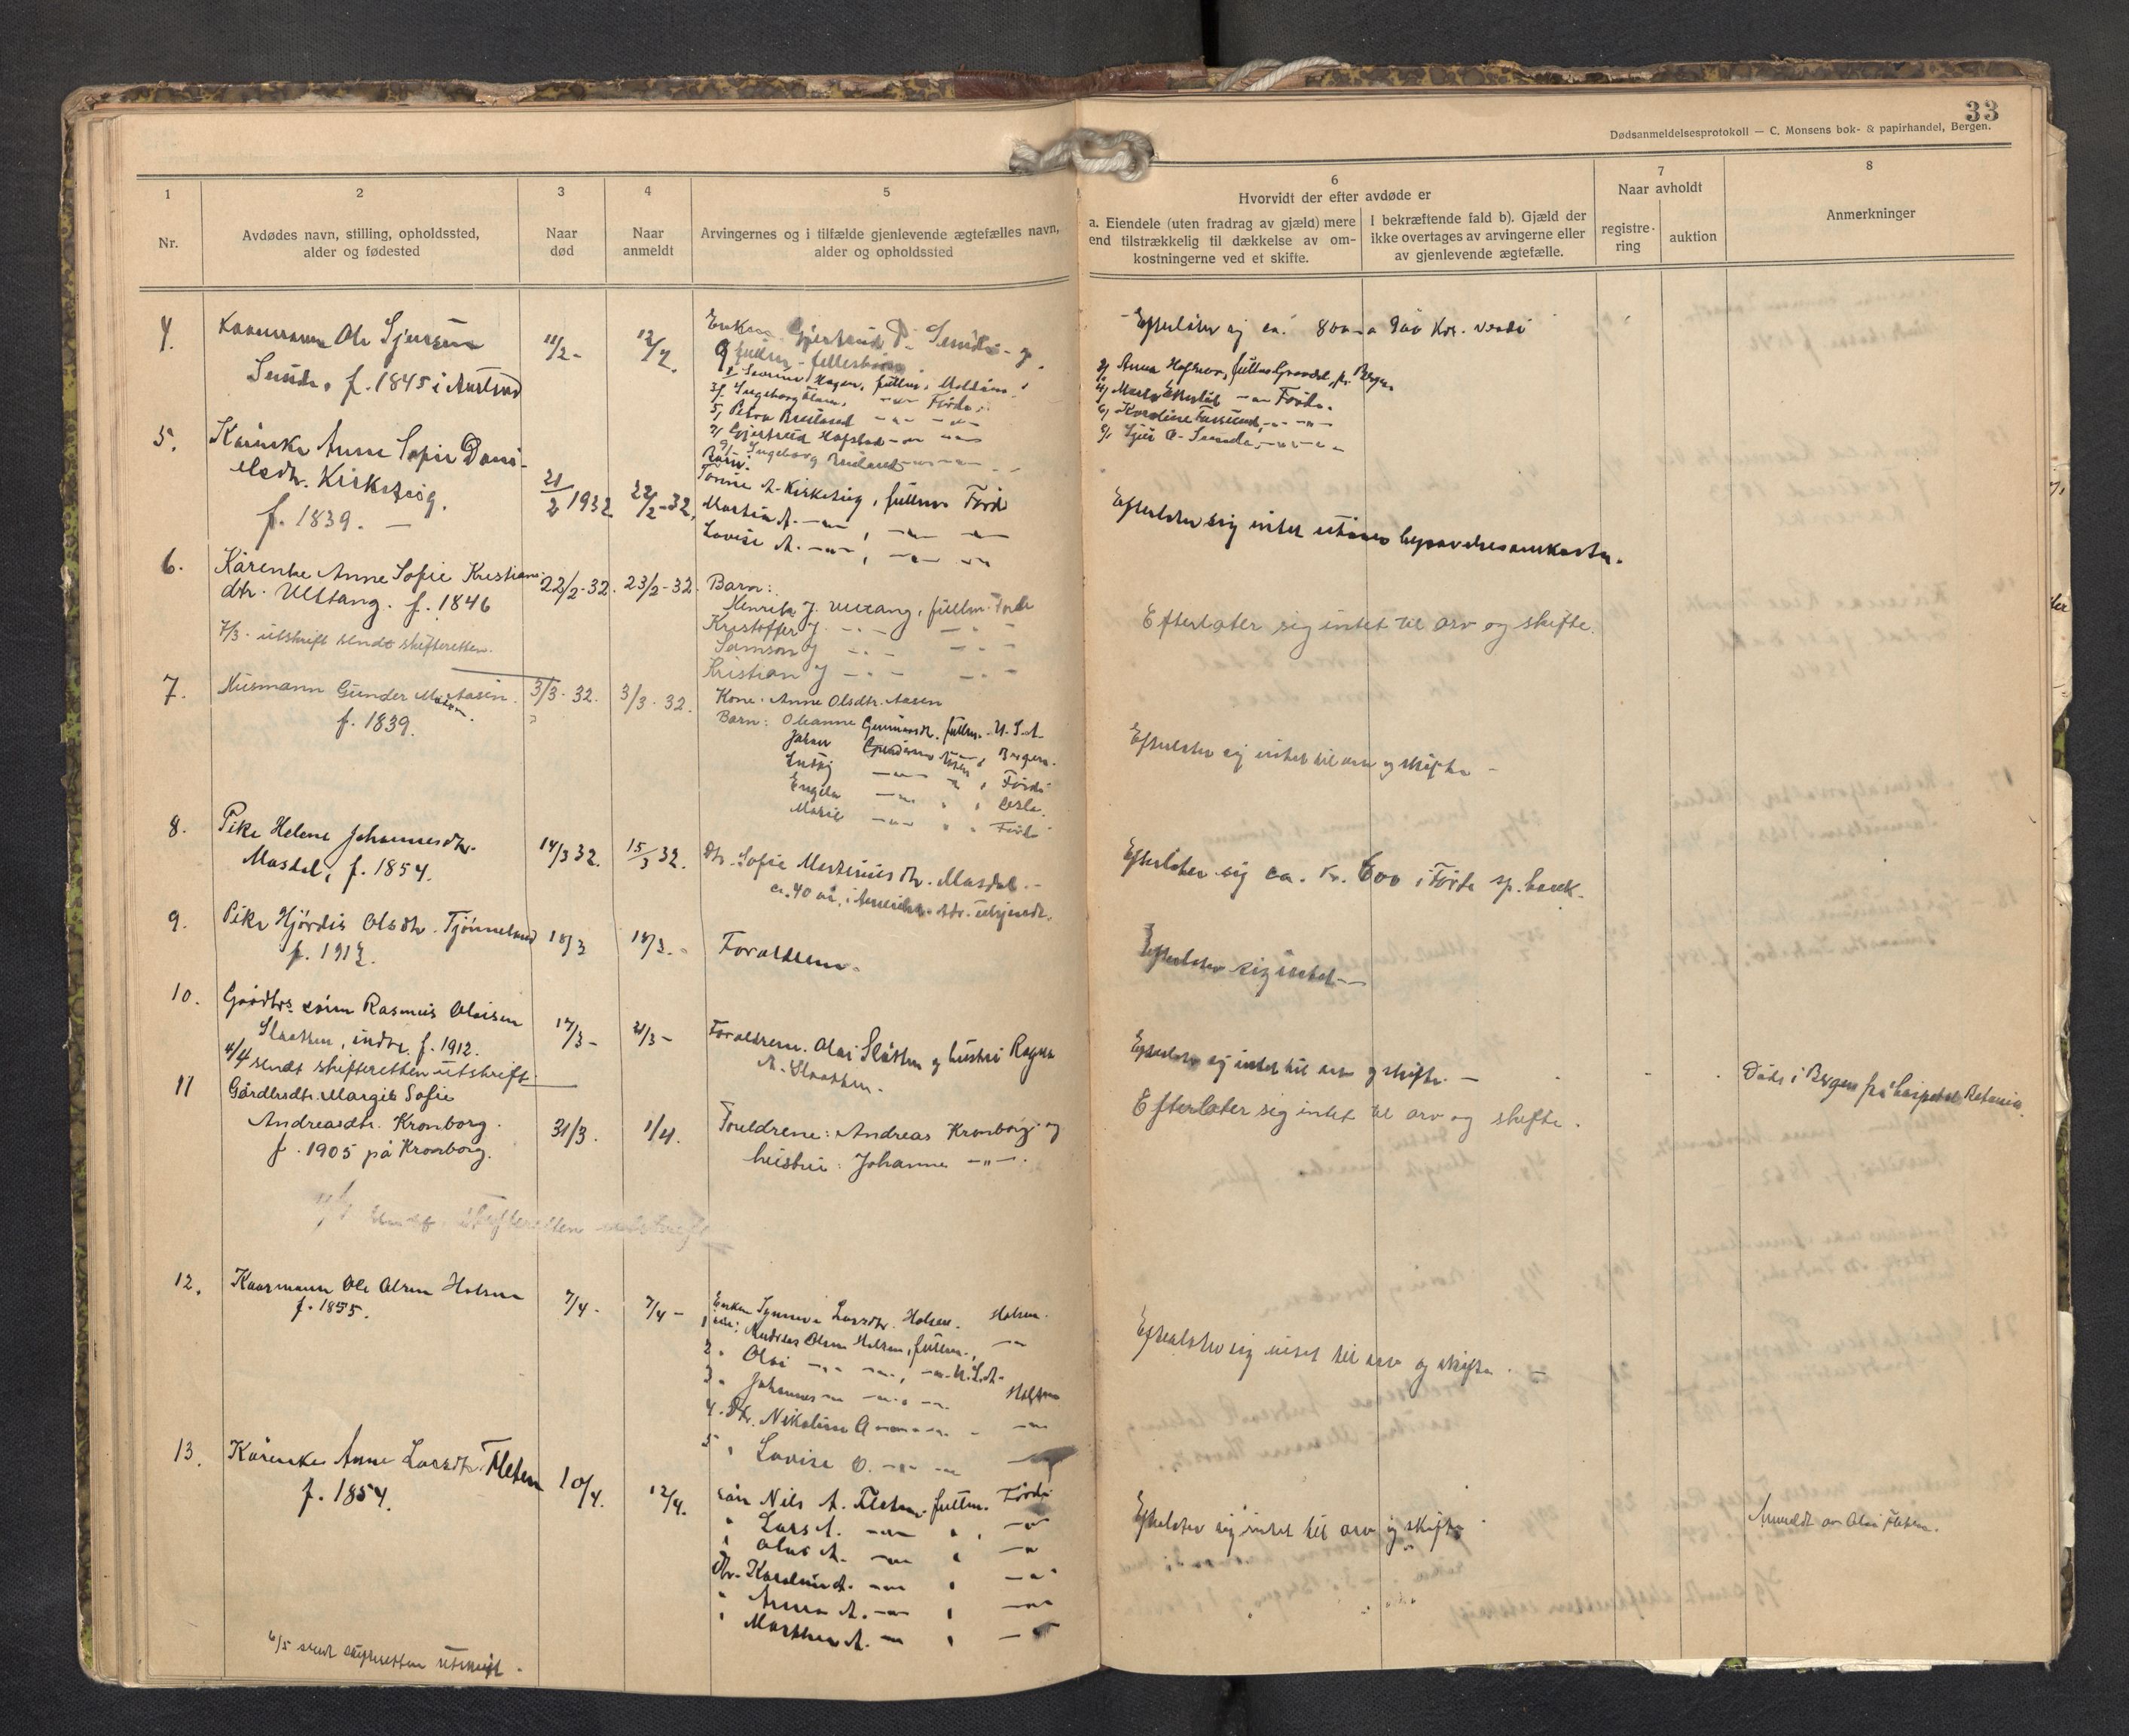 33
Dødsanmeldelsesprotokoll — C. Monsens bok- & papirhandel, Bergen.
1
2
3
4
5
6
7
8
Nr.
Avdødes navn, stilling, opholdssted,
alder og fødested
Naar
død
Naar
anmeldt
Arvingernes og i tilfælde gjenlevende ægtefælles navn,
alder og opholdssted
Hvorvidt der efter avdøde er
a. Eiendele (uten fradrag av gjæld) mere
end tilstrækkelig til dækkelse av om-
kostningerne ved et skifte.
I bekræftende fald b). Gjæld der
ikke overtages av arvingerne eller
av gjenlevende ægtefælle.
Naar avholdt
registre-
ring
auktion
Anmerkninger
4.
Kaarmann Ole Sjursen
Sunde, f. 1845 i
11/2 -
12/2.
Enken Gjertrud P. Sunde - og
9
Hagen, fullm.
3/. Ingeborg Førde
5, Petra
7/ Gjertrud Hofstad
9/ Ingeborg
Efterlater sig ca. 800 a 900 kr. verdi
2/ Anna Bergen
4/ Førde.
6/ Karoline
5.
Kårenke Anne Sofie Dani-
elsdtr. Kirketeig.
f. 1839. —
21/2 1932.
22/2-32.
Barn:
A. Kirketeig, fullm. Førde
Martin A. —"—, —"— —"—
Lovise A. —"—, —"— —"—
Efterlater sig intet utover begravelsesomkostn.
6.
Kårenke Anne Sofie Kristians-
dtr. Ulltang. f. 1846
7/3. utskrift sendt skifteretten.
22/2-32.
23/2-32.
Barn:
Henrik J. Ulltang, fullm. Førde
Kristoffer J. —"— —"—
Samson J —"— —"—
Kristian J —"— —"—
Efterlater sig intet til arv og skifte.
7.
Husmann Gunder Aasen.
f. 1839.
3/3. 32.
3/3. 32.
Kone: Anne Olsdtr. Aasen
Barn: Oleanne Gundersdt. fullm. U.S.A.
Johan Gundersen Aasen, Bergen.
Ludvig —"— , Førde
Engela —"— , Oslo.
Marie —"— Førde
Efterlater sig intet til arv og skifte -
8.
Pike Helene Johannesdtr.
Masdal, f. 1854.
14/3 32.
15/3 32.
Dtr. Sofie Martinusdtr. Masdal. -
ca. 40 år, i Amerika.
Efterlater sig ca. kr. 600 i Førde sp.bank.
9.
Pike Hjørdis Olsdtr. Tjønneland
f. 1912.
18/3
18/3. -
Foreldrene.
Efterlater sig intet —
10.
Gårdbr. sønn Rasmus Olaisen
Slaatten, indre. f. 1912.
4/4 sendt skifteretten utskrift.
17/3 -
21/3 -
Foreldrene. Olai Slåtten og hustru Ragna
A. Slaatten.
Efterlater sig intet til arv og skifte. —
Døde i Bergen på hospital Betania.
11
Gårdbrdtr. Margit Sofie
Andreasdtr. Kronborg.
f. 1905 på Kronborg.
31/3.
1/4.
Foreldrene: Andreas Kronborg og
hustru: Johanne —"—.
Efterlater sig intet til arv og skifte.
sendt skifteretten utskrift
12.
Kaarmann Ole Olsen Holsen
f. 1855.
7/4 -
7/4 -
Enken Synneva Larsdtr. Holsen. Holsen.
1 Andreas Olsen Holsen, fullm., —"—
2. Olai —"— —"—, —"— U.S.A.
3. Johannes —"— —"— Holsen
4. Dtr. Nikoline O —"— —"—
5 " Lovise O. —"— —"—
Efterlater sig intet til arv og skifte. —
13.
Kårenke Anne Larsdtr. Fleten
f. 1854.
10/4.
12/4.
Søn Nils A. Fleten. fullm. Førde
" Lars A. —"— " , —"—
" Olav A. —"— " —"—
Dtr. Karoline A. —"— " —"—
" Anna A. —"— " —"—
" Marthea A. —"— " —"—
Efterlater sig intet til arv og skifte
Anmeldt av Olai Fleten.
6/5 sendt skifteretten utskrift.